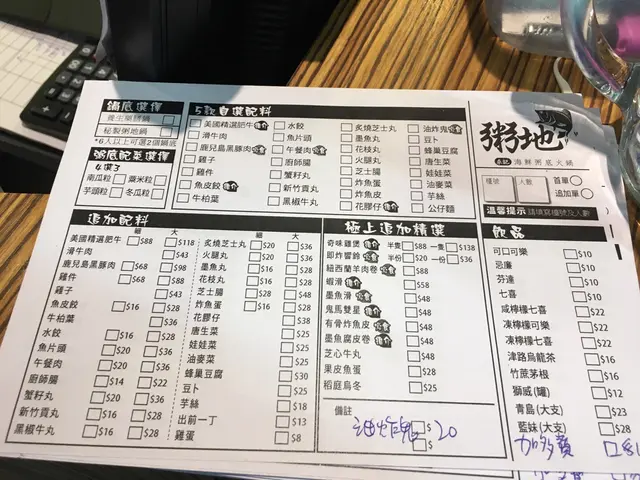 鍋底選擇
養生藥膳鍋
秘製粥地鍋
*6人以上可選2個鍋底
粥底配菜選擇
4選3
南瓜粒 粟米粒
芋頭粒 冬瓜粒
5款自選配料
美國精選肥牛 推介 水餃 炙燒芝士丸 油炸鬼
滑牛肉 魚片頭 墨魚丸 豆卜
鹿兒島黑豚肉 午餐肉 花枝丸 蜂巢豆腐
雞子 廚師腸 火腿丸 唐生菜
雞件 蟹籽丸 芝士腸 娃娃菜
魚皮餃 推介 新竹貢丸 炸魚蛋 油麥菜
牛柏葉 黑椒牛丸 炸魚皮 芋絲
花膠仔 推介 公仔麵
粥地
海鮮粥底火鍋
檯號 人數 首單
追加單
溫馨提示 請填寫檯號及人數
追加配料
細 大
美國精選肥牛 $88 $118
滑牛肉 $43
鹿兒島黑豚肉 $68 $98
雞件 $68 $88
雞子 $43
魚皮餃 $16 $28
牛柏葉 $36
水餃 $16 $28
魚片頭 $20 $36
午餐肉 $20 $36
廚師腸 $14 $22
蟹籽丸 $20 $36
新竹貢丸 $16 $28
黑椒牛丸 $16 $28
細 大
炙燒芝士丸 $20 $36
火腿丸 $20 $36
墨魚丸 $16 $28
花枝丸 $16 $28
芝士腸 $28 $48
炸魚蛋 $16 $28
花膠仔 $38
唐生菜 $25
娃娃菜 $25
油麥菜 $25
蜂巢豆腐 $30
豆卜 $25
芋絲 $18
出前一丁 $13
雞蛋 $8
極上追加精選
奇味雞煲 推介 半隻 $88 一隻 $138
即炸響鈴 半份 $20 一份 $36
紐西蘭羊肉卷 $88
蝦滑 推介 $58
墨魚滑 $48
鬼馬雙星 推介 $48
有骨炸魚皮 $48
墨魚腐皮卷 推介 $48
芝心牛丸 $48
果皮魚蛋 $28
稻庭烏冬 $25
備註
油炸鬼 $20
$
飲品
可口可樂 $10
忌廉 $10
芬達 $10
七喜 $10
咸檸檬七喜 $22
凍檸檬可樂 $22
凍檸檬七喜 $22
津路烏龍茶 $16
竹蔗茅根 $16
獅威(罐) $12
青島(大支) $23
藍妹(大支) $28
加多寶